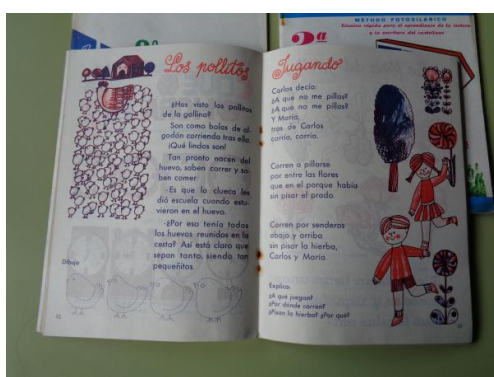 METODO FOTOSILABICO
Técnica rápida para el aprendizaje de la lectura
y la escritura del castellano
2ª
Los pollitos
¿Has visto los pollitos
de la gallina?
Son como bolas de al-
godón corriendo tras ella.
¡Qué lindos son!
Tan pronto nacen del
huevo, saben correr y sa-
ben comer.
-Es que la clueca les
dió escuela cuando estu-
vieron en el huevo.
-¿Por eso tenía todos
los huevos reunidos en la
cesta? Así está claro que
sepan tanto, siendo tan
pequeñitos.
Dibuja
Jugando
Carlos decía:
¿A que no me pillas?
¿A que no me pillas?
Y María,
tras de Carlos
corría, corría.
Corren a pillarse
por entre las flores
que en el parque había
sin pisar el prado.
Corren por senderos
abajo y arriba
sin pisar la hierba,
Carlos y María.
Explica:
¿A qué juegan?
¿Por dónde corren?
¿Pisan la hierba? ¿Por qué?